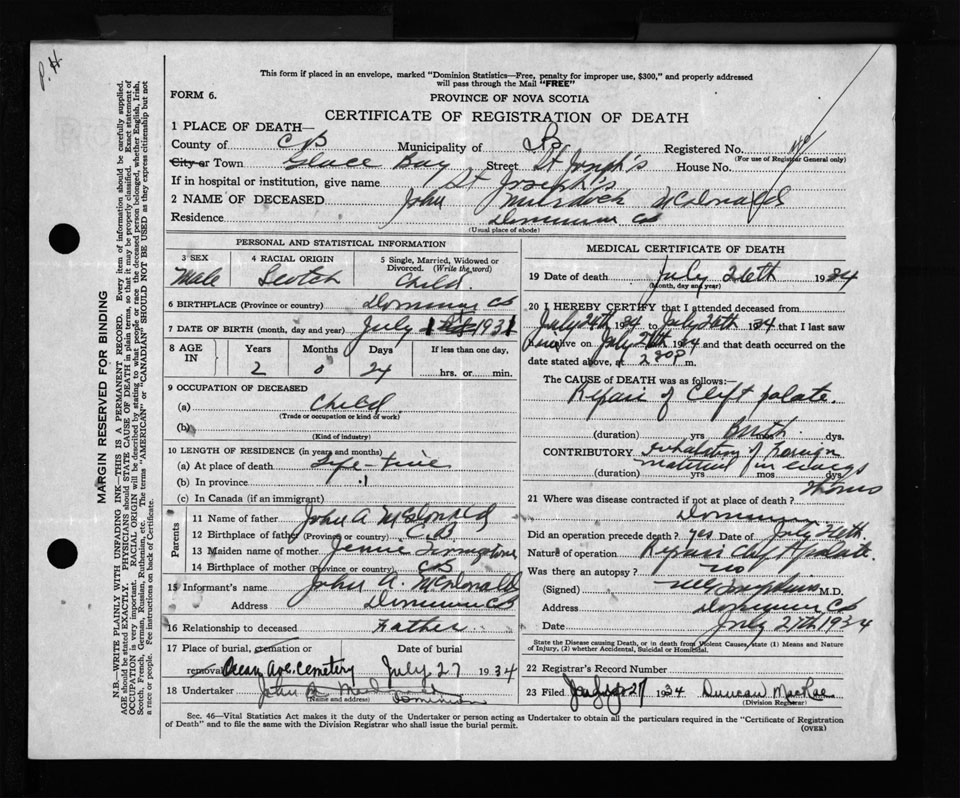 P. H
This form if placed in an envelope, marked "Dominion Statistics—Free, penalty for improper use, $300," and properly addressed
will pass through the Mail "FREE"
FORM 6.
PROVINCE OF NOVA SCOTIA
CERTIFICATE OF REGISTRATION OF DEATH
1 PLACE OF DEATH—
County of C B Municipality of Registered No.
(For use of Registrar General only)
City or Town Glace Bay Street St Joseph's House No.
If in hospital or institution, give name St Joseph's
2 NAME OF DECEASED John Murdoch McDonald
Residence Dominion CB
(Usual place of abode)
PERSONAL AND STATISTICAL INFORMATION
3 SEX
Male
4 RACIAL ORIGIN
Scotch
5 Single, Married, Widowed or
Divorced. (Write the word)
Child.
6 BIRTHPLACE (Province or country) Dominion CB
7 DATE OF BIRTH (month, day and year) July 1931
8 AGE
IN
Years Months Days If less than one day,
2 0 24 hrs. or min.
9 OCCUPATION OF DECEASED
(a) Child
(Trade or occupation or kind of work)
(b)
(Kind of industry)
10 LENGTH OF RESIDENCE (in years and months)
(a) At place of death Life-time
(b) In province "
(c) In Canada (if an immigrant)
Parents
11 Name of father John A McDonald
12 Birthplace of father (Province or country) C.B.
13 Maiden name of mother Jennie Livingstone
14 Birthplace of mother (Province or country) CB
15 Informant's name John A. McDonald
Address Dominion CB
16 Relationship to deceased Father
17 Place of burial, cremation or Date of burial
removal Ocean Ave. Cemetery July 27 1934
18 Undertaker John
(Name and address) Dominion
MEDICAL CERTIFICATE OF DEATH
19 Date of death July 26th 1934
(Month, day and year)
20 I HEREBY CERTIFY that I attended deceased from
July 24th 1934 to July 26th 1934 that I last saw
him alive on July 1934 and that death occurred on the
date stated above, at 2 30 P m.
The CAUSE OF DEATH was as follows:
Repair of Cleft palate.
(duration) yrs Birth mos dys.
CONTRIBUTORY inhalation of foreign
material in lungs
(duration) yrs mos dys
21 Where was disease contracted if not at place of death?
Dominion
Did an operation precede death? yes Date of July 26th.
Nature of operation Repair Cleft palate.
Was there an autopsy? no
(Signed) M.D.
Address Dominion CB
Date July 27th 1934
State the Disease causing Death, or in death from Violent Causes, state (1) Means and Nature
of Injury, (2) whether Accidental, Suicidal or Homicidal.
22 Registrar's Record Number
23 Filed July 27 1934 Duncan MacRae
(Division Registrar)
Sec. 46—Vital Statistics Act makes it the duty of the Undertaker or person acting as Undertaker to obtain all the particulars required in the "Certificate of Registration
of Death" and to file the same with the Division Registrar who shall issue the burial permit.
(OVER)
MARGIN RESERVED FOR BINDING
N.B.—WRITE PLAINLY WITH UNFADING INK—THIS IS A PERMANENT RECORD. Every item of information should be carefully supplied.
AGE should be stated EXACTLY. PHYSICIANS should STATE CAUSE OF DEATH in plain terms, so that it may be properly classified. Exact statement of
OCCUPATION is very important. RACIAL ORIGIN will be described by stating to what people or race the deceased person belonged, whether English, Irish,
Scotch, French, German, Russian, Ruthenian, etc. The terms "AMERICAN" or "CANADIAN" SHOULD NOT BE USED as they express citizenship but not
a race or people. Fee instructions on back of Certificate.